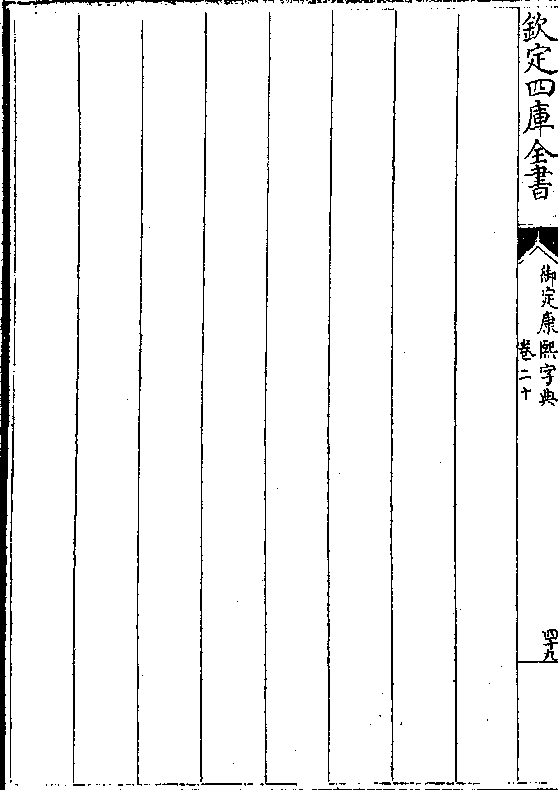 欽定四庫全書
御定康熙字典
卷二十
四十九